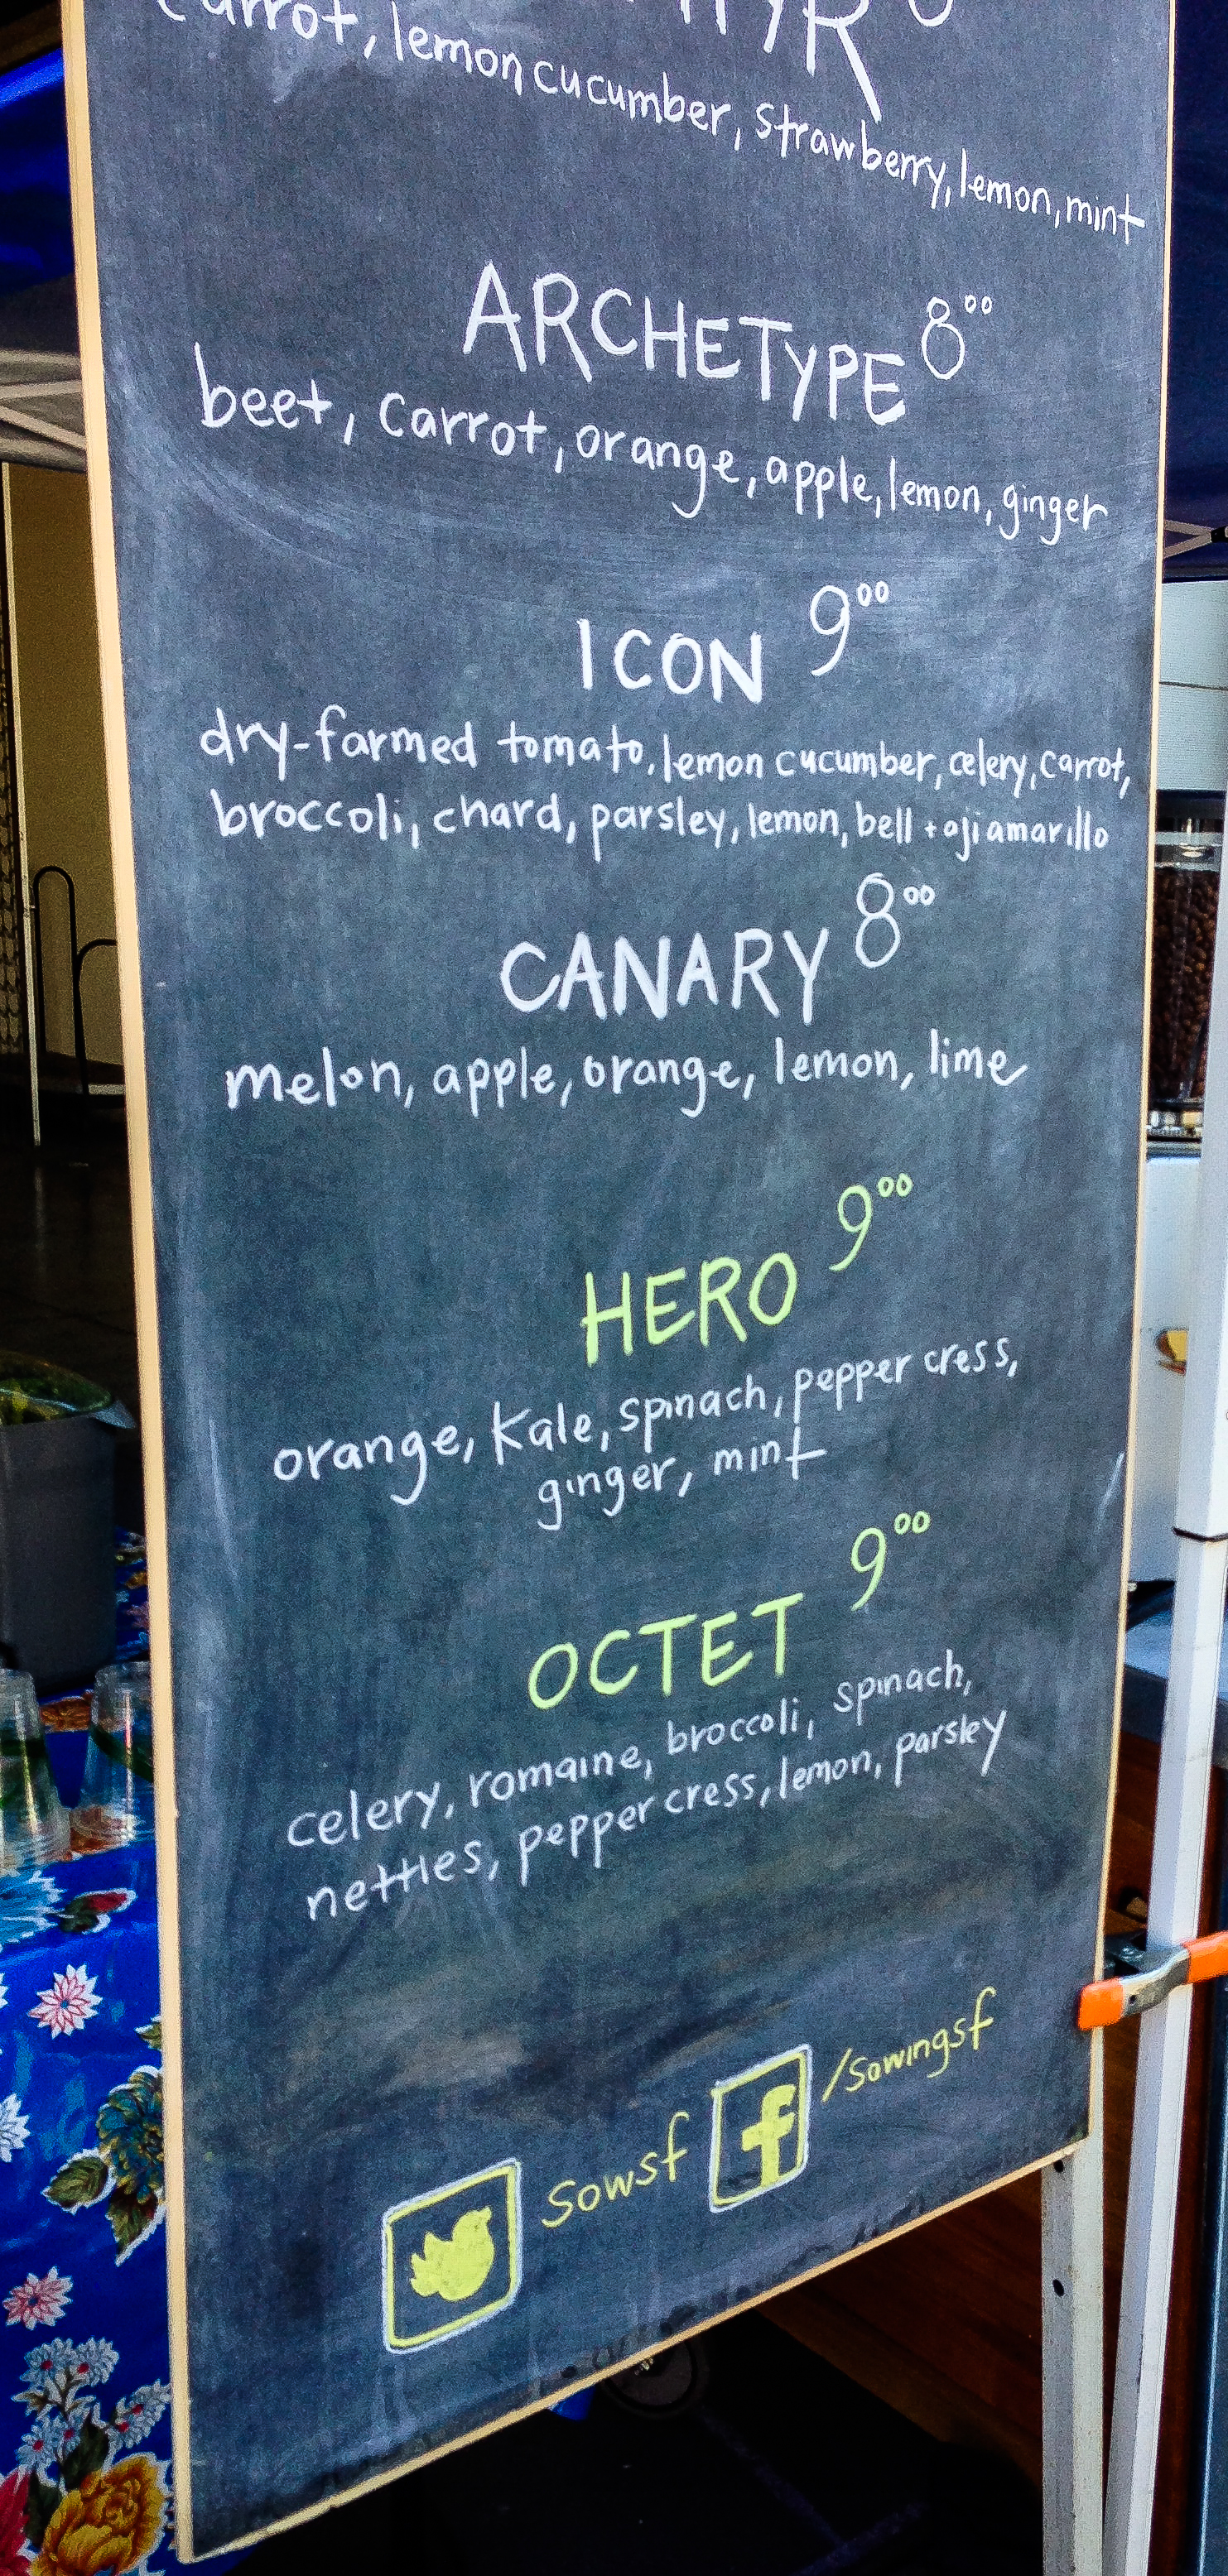 carrot, lemon cucumber, strawberry, lemon, mint
ARCHETYPE 8⁰⁰
beet, carrot, orange, apple, lemon, ginger
ICON 9⁰⁰
dry-farmed tomato, lemon cucumber, celery, carrot,
broccoli, chard, parsley, lemon, bell + aji amarillo
CANARY 8⁰⁰
melon, apple, orange, lemon, lime
HERO 9⁰⁰
orange, kale, spinach, pepper cress,
ginger, mint
OCTET 9⁰⁰
celery, romaine, broccoli, spinach,
nettles, pepper cress, lemon, parsley
sowsf f /sowingsf